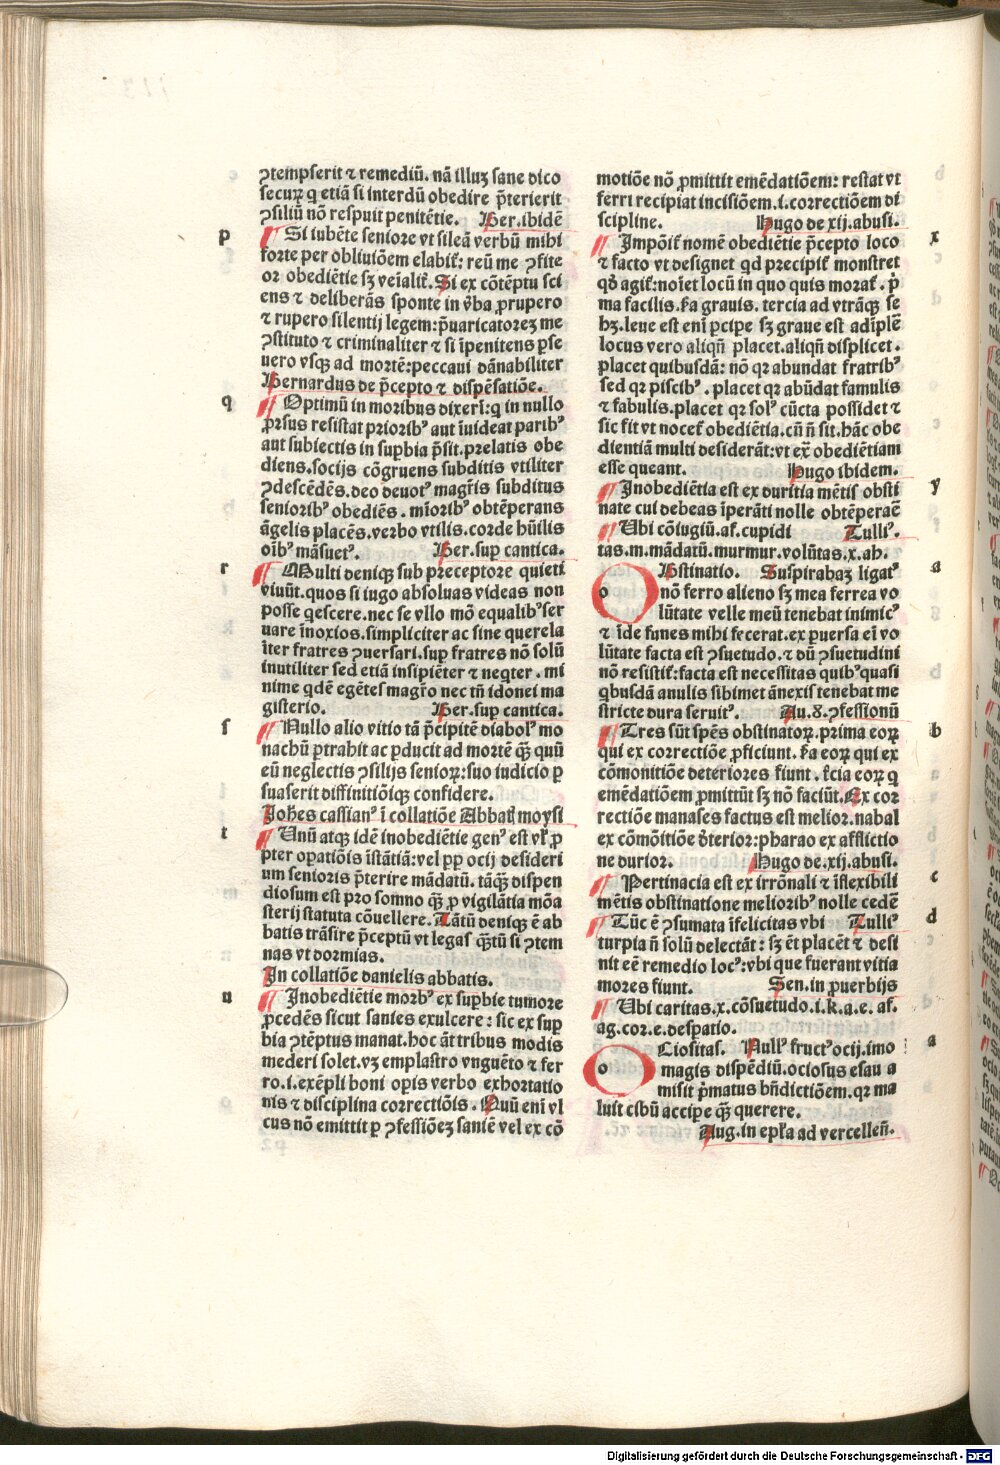 ꝯtempserit ⁊ remediū. nā illuꝫ sane dico
securꝝ q etiā si interdū obedire p̄terierit
ꝯsiliū nō respuit penitētie. Ber. ibidē
p
Si iubēte seniore vt sileā verbū mihi
forte per obliuiōem elabit᷑: reū me ꝯfite
or obediētie sꝫ veīalit᷑. Si ex cōtēptu sci
ens ⁊ deliberās sponte in v̄ba ꝓrupero
⁊ rupero silentij legem: p̄uaricatoreꝫ me
ꝯstituto ⁊ criminaliter ⁊ si īpenitens ꝑse
uero vsqꝫ ad mortē: peccaui dānabiliter
Bernardus de p̄cepto ⁊ dispēsatiōe.
q
Optimū in moribus dixerī: q in nullo
ꝓrsus resistat priorib᾽ aut īuideat parib᾽
aut subiectis in suꝑbia p̄sit. prelatis obe
diens. socijs cōgruens subditis vtiliter
ꝯdescēdēs. deo deuot᾽ magr̄is subditus
seniorib᾽ obediēs. mīorib᾽ obtēperans
āgelis placēs. verbo vtilis. corde hūilis
oīb᾽ māsuet᾽. Ber. suꝑ cantica.
r
Multi deniqꝫ sub preceptore quieti
viuūt. quos si iugo absoluas videas non
posse qescere. nec se vllo mō equalib᾽ ser
uare īnoxios. simpliciter ac sine querela
īter fratres ꝯuersari. suꝑ fratres nō solū
inutiliter sed etiā insipiēter ⁊ neqter. mi
nime qdē egētes magr̄o nec tn̄ idonei ma
gisterio. Ber. suꝑ cantica.
s
Nullo alio vitio tā p̄cipitē diabol᾽ mo
nachū ꝑtrahit ac ꝑducit ad mortē qꝫ̄ quū
eū neglectis ꝯsilijs seniorꝝ: suo iudicio ꝑ
suaserit diffinitiōiqꝫ confidere.
Joh̄es cassian᾽ ī collatiōe Abbatꝭ moysi
t
Unū atqꝫ idē inobediētie gen᾽ est vl̄ ꝓ
pter oꝑatiōis īstātiā: vel ꝓp ocij desideri
um senioris p̄terire mādatū. tāqꝫ̄ dispen
diosum est pro somno qꝫ̄ ꝓ vigilātia mōa
sterij statuta cōuellere. Tātū deniqꝫ ē ab
batis trāsire p̄ceptū vt legas qꝫ̄tū si ꝯtem
nas vt dormias.
In collatiōe danielis abbatis.
u
Inobediētie morb᾽ ex suꝑbie tumore
ꝓcedēs sicut sanies exulcere: sic ex suꝑ
bia ꝯtēptus manat. hoc āt tribus modis
mederi solet. vꝫ emplastro vnguēto ⁊ fer
ro. i. exēpli boni opis verbo exhortatio
nis ⁊ disciplina correctiōis. Quū enī vl
cus nō emittit ꝑ ꝯfessiōeꝫ saniē vel ex cō
motiōe nō ꝓmittit emēdatiōem: restat vt
ferri recipiat incisiōem. i. correctiōem di
scipline. Hugo de xij. abusi.
x
Impōit᷑ nomē obediētie p̄cepto loco
⁊ facto vt designet qd precipit᷑ monstret
qd̄ agit᷑: noīet locū in quo quis morat᷑. p̄
ma facilis. s̄ca grauis. tercia ad vtrāqꝫ se
hꝫ. leue est enī pcipe sꝫ graue est adīplē
locus vero aliqn̄ placet. aliqn̄ displicet.
placet quibusdā: nō qꝛ abundat fratrib᾽
sed qꝛ piscib᾽. placet qꝛ abūdat famulis
⁊ fabulis. placet qꝛ sol᾽ cūcta possidet ⁊
sic fit vt nocet᷑ obediētia. cū n̄ sit. hāc obe
dientiā multi desiderāt: vt ex̄ obediētiam
esse queant. Hugo ibidem.
y
Inobediētia est ex duritia mētis obsti
nate cui debeas īperāti nolle obtēperaē
Ubi cōiugiū. af. cupidi Tulli᾽.
tas. m. mādatū. murmur. volūtas. x. ah.
a
Obstinatio. Suspirabaꝫ ligat᾽
o nō ferro alieno sꝫ mea ferrea vo
lūtate velle meū tenebat inimic᾽
⁊ īde funes mihi fecerat. ex ꝑuersa eī vo
lūtate facta est ꝯsuetudo. ⁊ dū ꝯsuetudini
nō resistit᷑: facta est necessitas quib᾽ quasi
qbusdā anulis sibimet ānexis tenebat me
stricte dura seruit᾽. Au. 8. ꝯfessionū
b
Tres sūt spēs obstinatorꝝ. prima eorꝝ
qui ex correctiōe ꝓficiunt. s̄ca eorꝝ qui ex
cōmonitiōe deteriores fiunt. t̄cia eorꝝ q
emēdatiōem ꝓmittūt sꝫ nō faciūt. Ex cor
rectiōe manases factus est melior. nabal
ex cōmōitiōe d̄terior: pharao ex afflictio
ne durior. Hugo de. xij. abusi.
c
Pertinacia est ex irrōnali ⁊ īflexibili
mētis obstinatione meliorib᾽ nolle cedē
d
Tūc ē ꝯsumata īfelicitas vbi Tulli᾽
turpia n̄ solū delectāt: sꝫ ēt placēt ⁊ desi
nit eē remedio loc᾽: vbi que fuerant vitia
mores fiunt. Sen. in ꝓuerbijs
Ubi caritas. x. cōsuetudo. i. k. a. e. af.
ag. cor. e. despatio.
a
Ociositas. Null᾽ fruct᾽ ocij. imo
o magis dispēdiū. ociosus esau a
misit p̄matus bn̄dictiōem. qꝛ ma
luit cibū accipe qꝫ̄ querere.
Aug. in epl̄a ad vercellen̄.
Digitalisierung gefördert durch die Deutsche Forschungsgemeinschaft - DFG